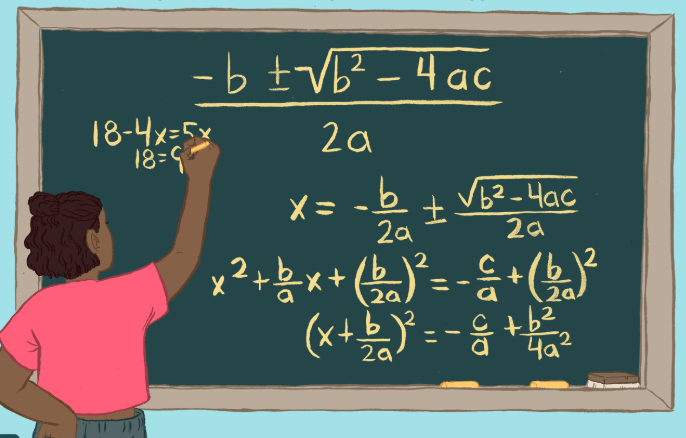 -b ±√b² - 4ac
2a
18-4x=5x
18=9
x = -b/2a ± √b²-4ac/2a
x² + b/a x + (b/2a)² = -c/a + (b/2a)²
(x + b/2a)² = -c/a + b²/4a²